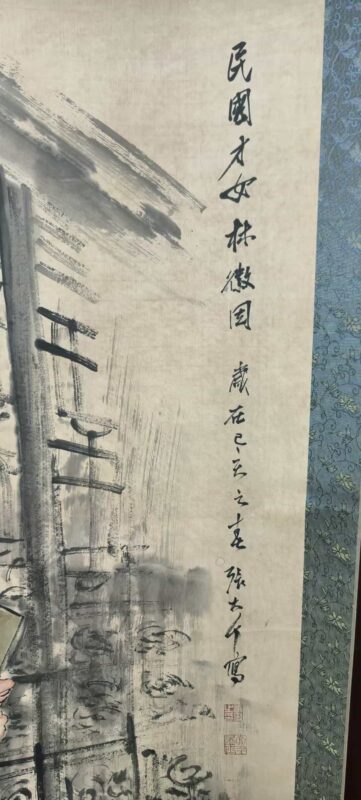 民國才女林徽因 歲在己亥之春張大千寫